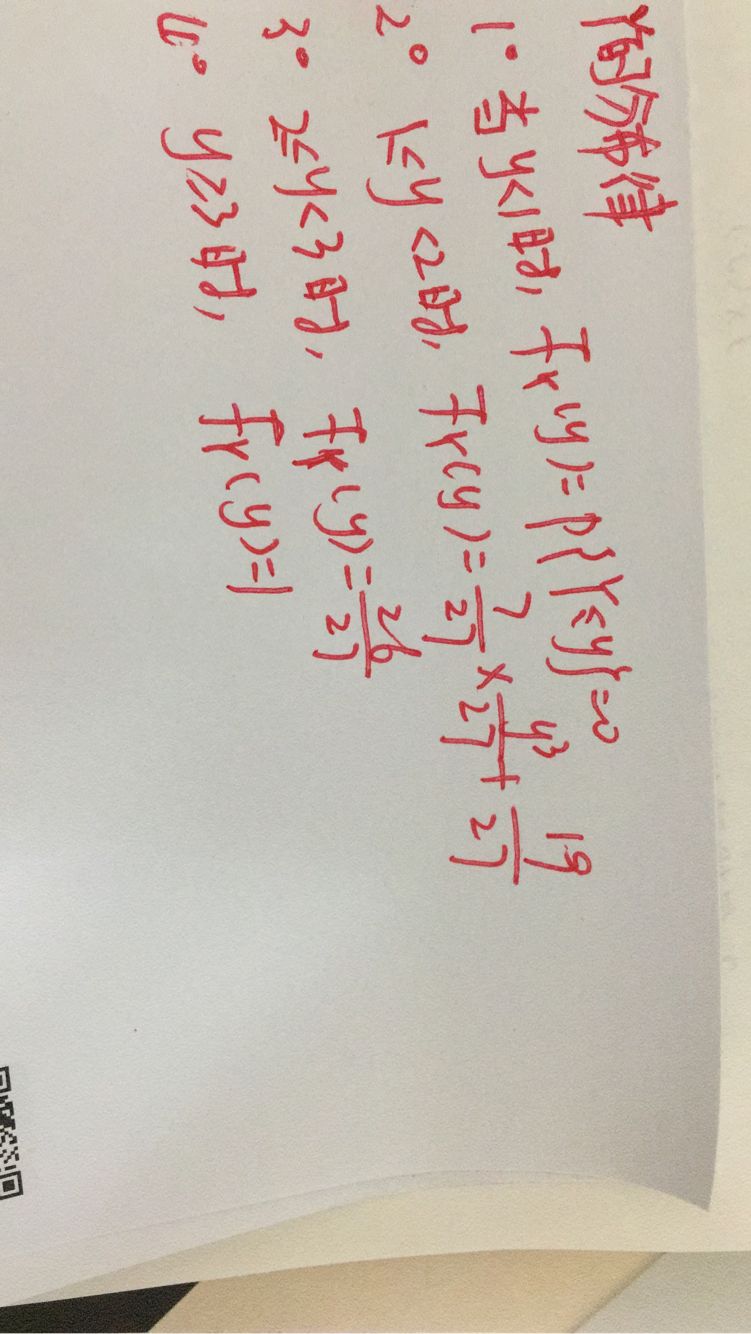 Y的分布律
1° 当y<1时, F_Y(y)=P{Y≤y}=0
2° 1≤y<2时, F_Y(y)=7/27×y³/27+19/27
3° 2≤y<3时, F_Y(y)=26/27
4° y≥3时, F_Y(y)=1